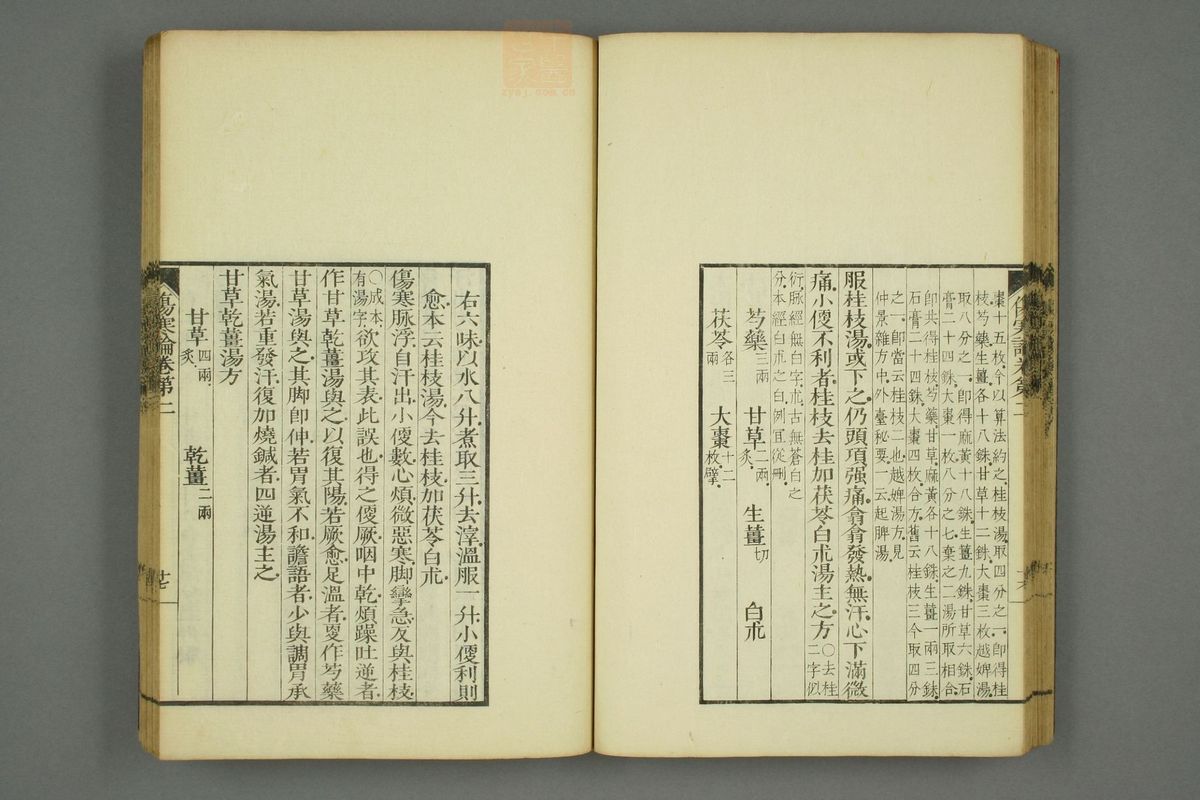 棗十五枚今以算法約之桂枝湯取四分之一卽得桂
枝芍藥生薑各十八銖甘草十二銖大棗三枚越婢湯
取八分之一卽得麻黃十八銖生薑九銖甘草六銖石
膏二十四銖大棗一枚八分之七棄之二湯所取相合
卽共得桂枝芍藥甘草麻黃各十八銖生薑一兩三銖
石膏二十四銖大棗四枚合方舊云桂枝三今取四分
之一卽當云桂枝二也越婢湯方見
仲景雜方中外臺秘要一云起脾湯
服桂枝湯或下之仍頭項强痛翕翕發熱無汗心下滿微
痛小便不利者桂枝去桂加茯苓白朮湯主之方〇去桂
二字似
衍脉經無白字朮古無蒼白之
分本經白朮之白例宜從刪
芍藥三兩 甘草二兩炙 生薑切 白朮
茯苓各三兩 大棗十二枚擘
傷寒論卷第二
廿六
右六味以水八升煮取三升去滓溫服一升小便利則
愈本云桂枝湯今去桂枝加茯苓白朮
傷寒脉浮自汗出小便數心煩微惡寒脚攣急反與桂枝
〇成本有湯字欲攻其表此誤也得之便厥咽中乾煩躁吐逆者
作甘草乾薑湯與之以復其陽若厥愈足溫者更作芍藥
甘草湯與之其脚卽伸若胃氣不和譫語者少與調胃承
氣湯若重發汗復加燒鍼者四逆湯主之
甘草乾薑湯方
甘草四兩炙 乾薑二兩
傷寒論卷第二
廿七
zysj.com.cn